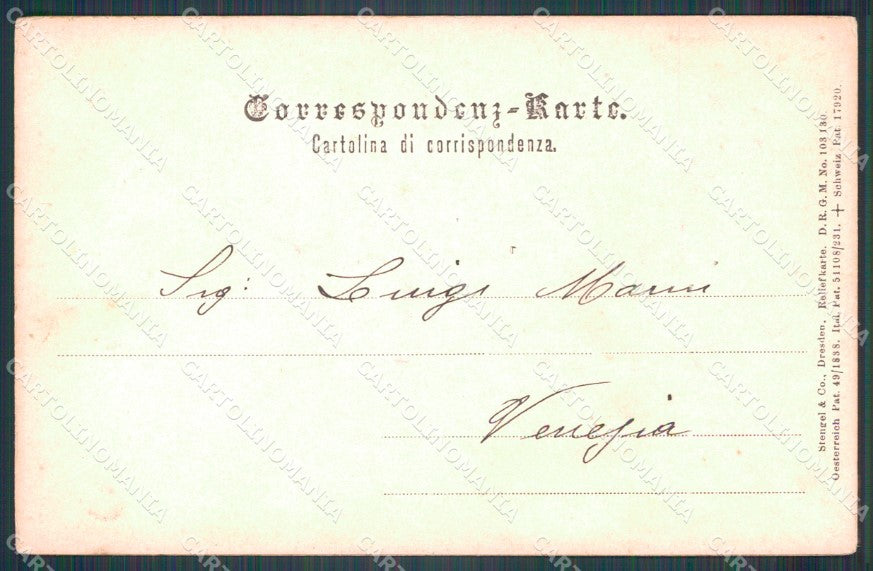 Correspondenz-Karte.
Cartolina di corrispondenza.
Sig: Luigi Marini
Venezia
Stengel & Co., Dresden. Reliefkarte. D. R. G. M. No. 103 130
Oesterreich Pat. 49/1838. Ital. Pat. 51108/231. + Schweiz Pat. 17920.
CARTOLINOMANIA